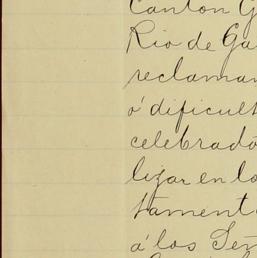 Canton G
Rio de Ga
reclaman
ó dificult
celebrado
lizar en lo
tamento
á los Señ